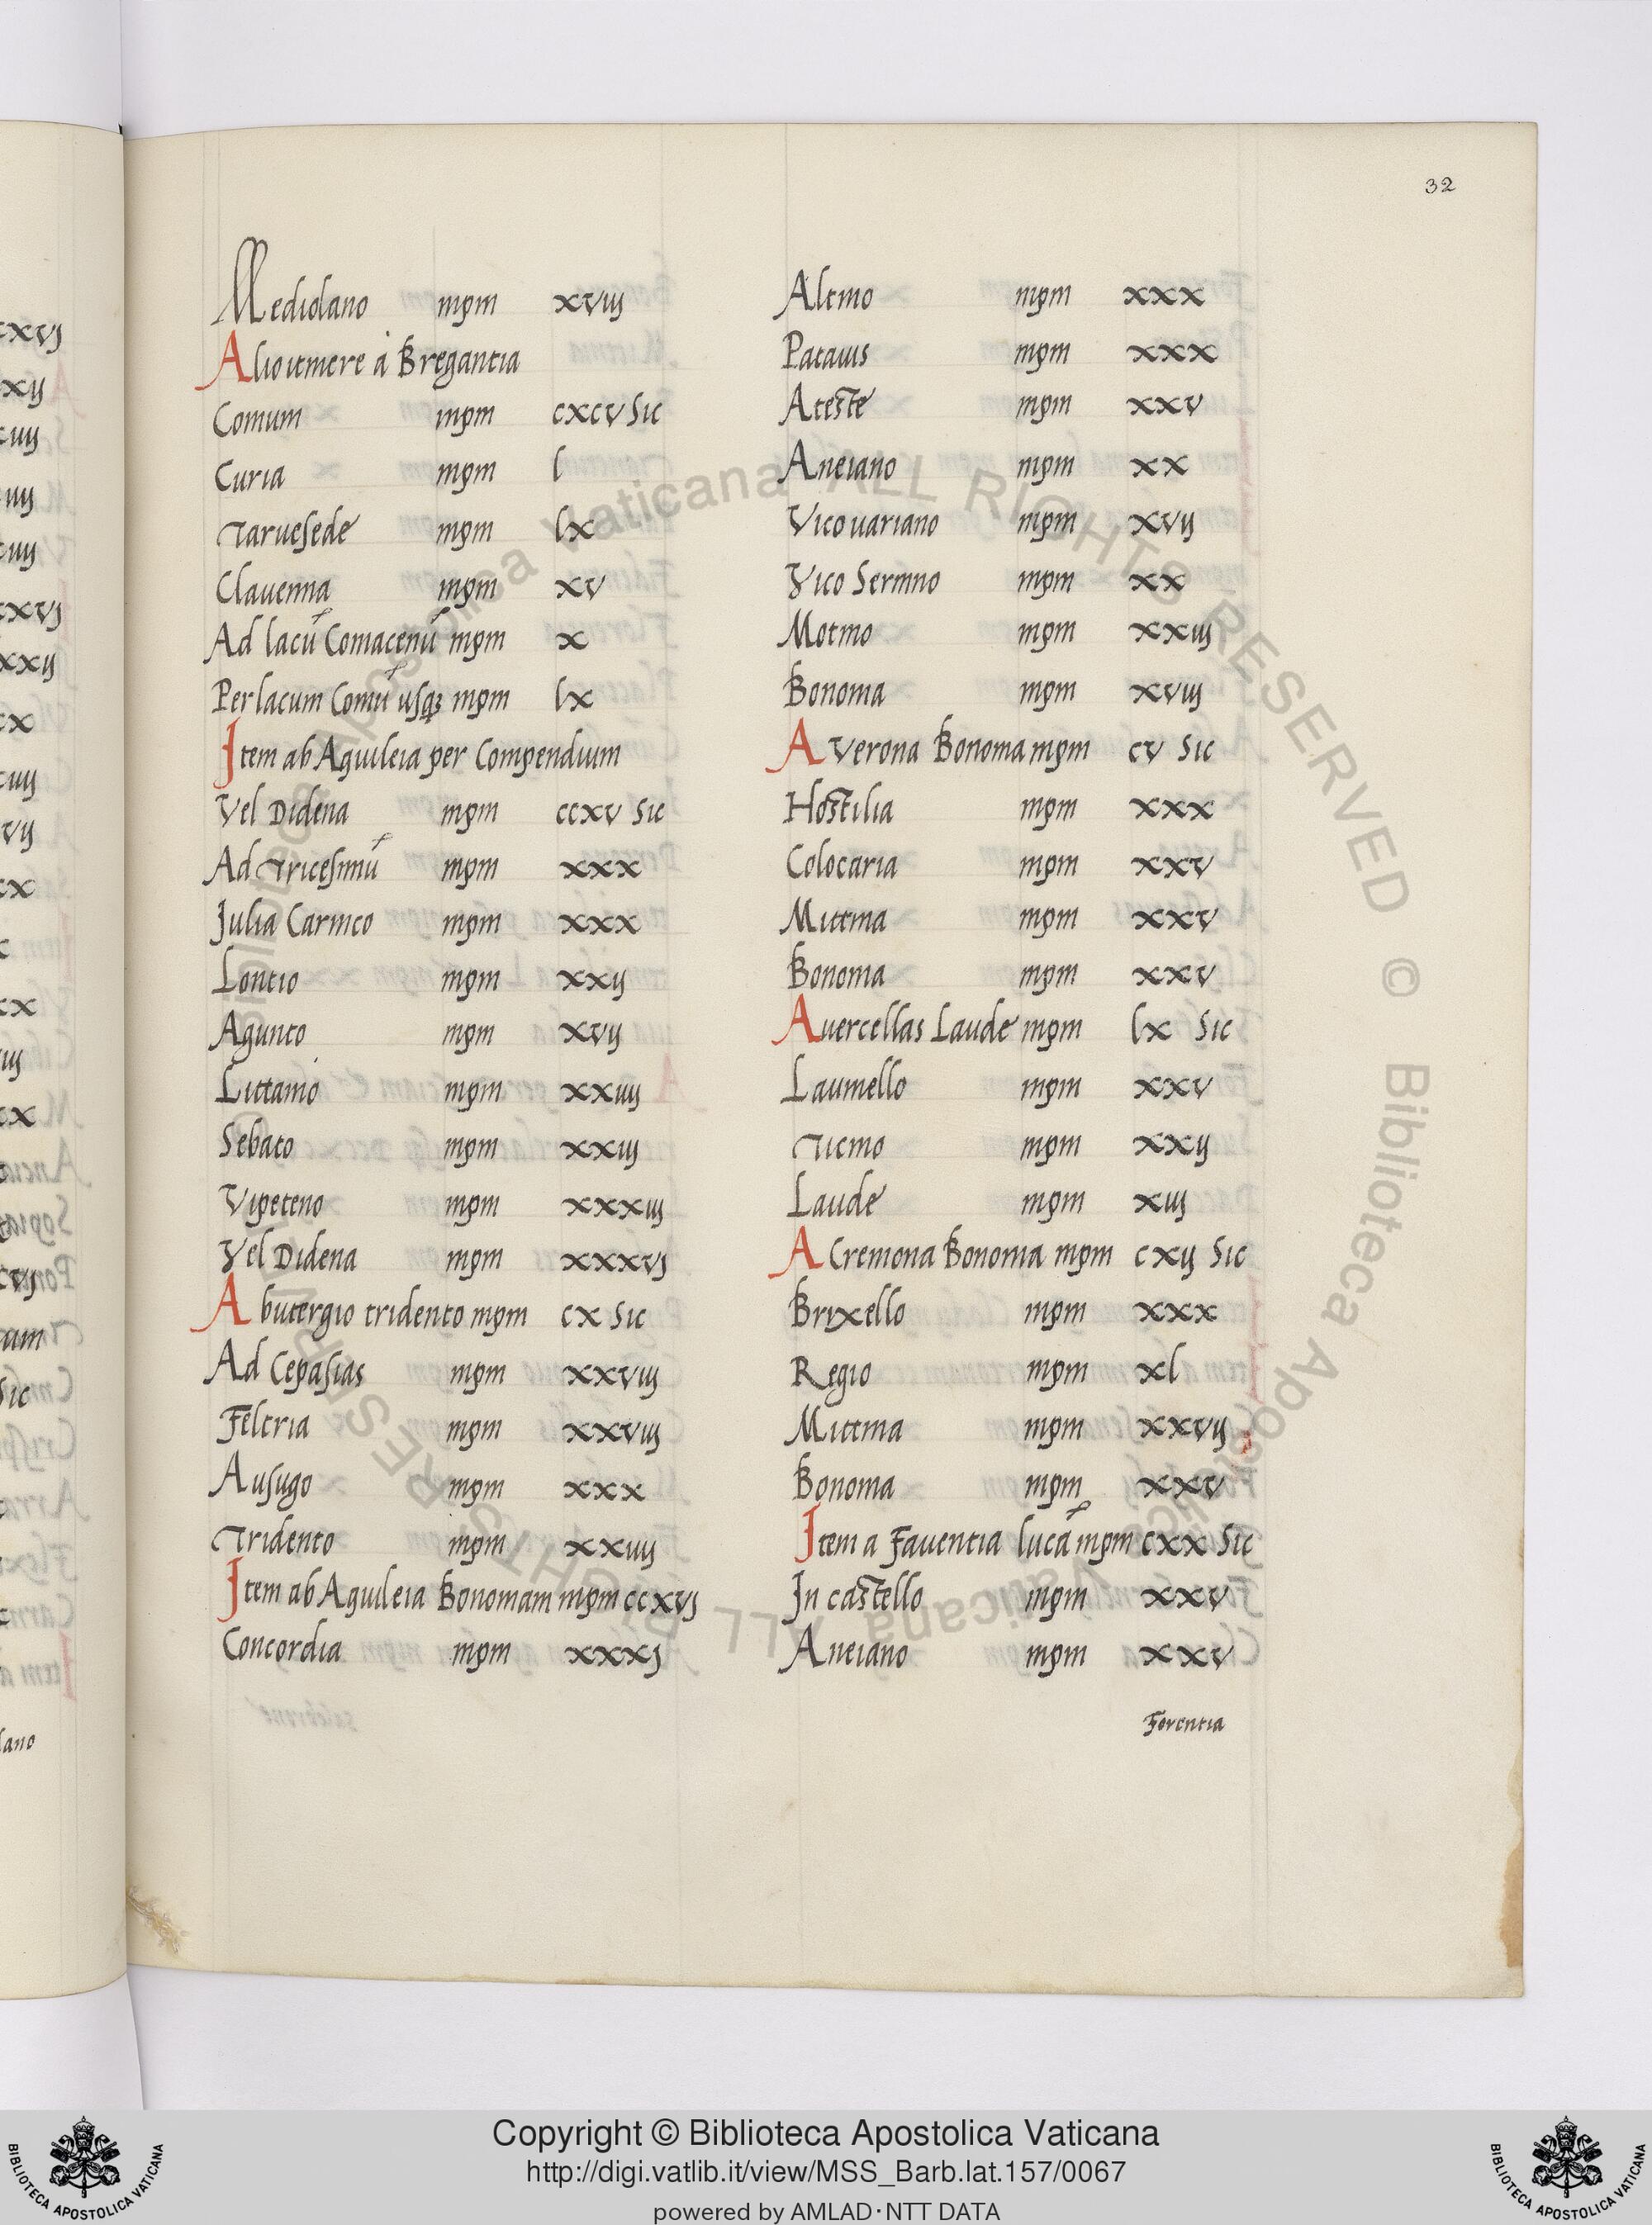 32
Mediolano mpm xviij
Alio itinere à Bregantia
Comum mpm cxcv sic
Curia mpm l
Taruesede mpm lx
Clauenna mpm xv
Ad lacū Comacenū mpm x
Per lacum Comū usq; mpm lx
Item ab Aquileia per Compendium
Vel Didena mpm ccxv sic
Ad Tricesimū mpm xxx
Julia Carnico mpm xxx
Lontio mpm xxij
Agunto mpm xvij
Littamo mpm xxiiij
Sebato mpm xxiij
Vipeteno mpm xxxiij
Vel Didena mpm xxxvj
Abutergio tridento mpm cx sic
Ad Cepasias mpm xxviij
Feltria mpm xxviij
Ausugo mpm xxx
Tridento mpm xxiiij
Item ab Aquileia Bononiam mpm ccxvj
Concordia mpm xxxj
Altino mpm xxx
Patauis mpm xxx
Ateste mpm xxv
Aneiano mpm xx
Vico uariano mpm xvij
Vico Sernino mpm xx
Motino mpm xxiij
Bononia mpm xviij
A Verona Bononia mpm cv sic
Hostilia mpm xxx
Colocaria mpm xxv
Mittina mpm xxv
Bononia mpm xxv
Auercellas Laude mpm lx sic
Laumello mpm xxv
Ticino mpm xxij
Laude mpm xiij
A Cremona Bononia mpm cxij sic
Brixello mpm xxx
Regio mpm xl
Mittina mpm xxvij
Bononia mpm xxv
Item a Fauentia lucā mpm cxx sic
In castello mpm xxv
Aneiano mpm xxv
Forentia
Copyright © Biblioteca Apostolica Vaticana
http://digi.vatlib.it/view/MSS_Barb.lat.157/0067
powered by AMLAD·NTT DATA